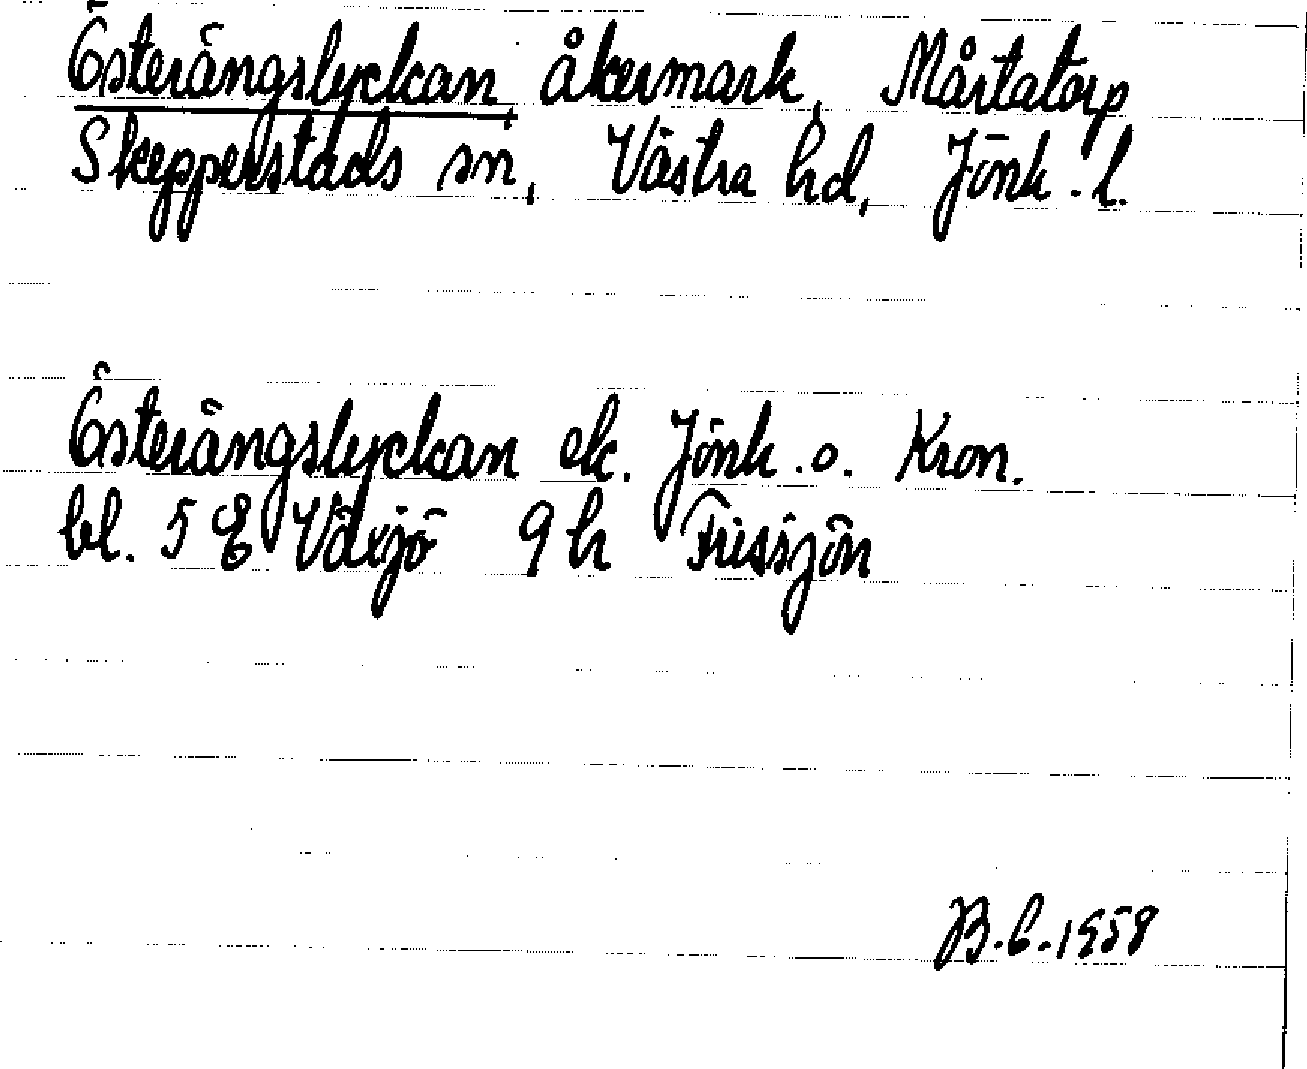 Österängslyckan, åkermark, Mårtatorp
Skepperstads sn, Västra hd, Jönk. l.
Österängslyckan ek. Jönk. o. Kron.
bl. 5 E Växjö 9 h Frissjön
B. C. 1958